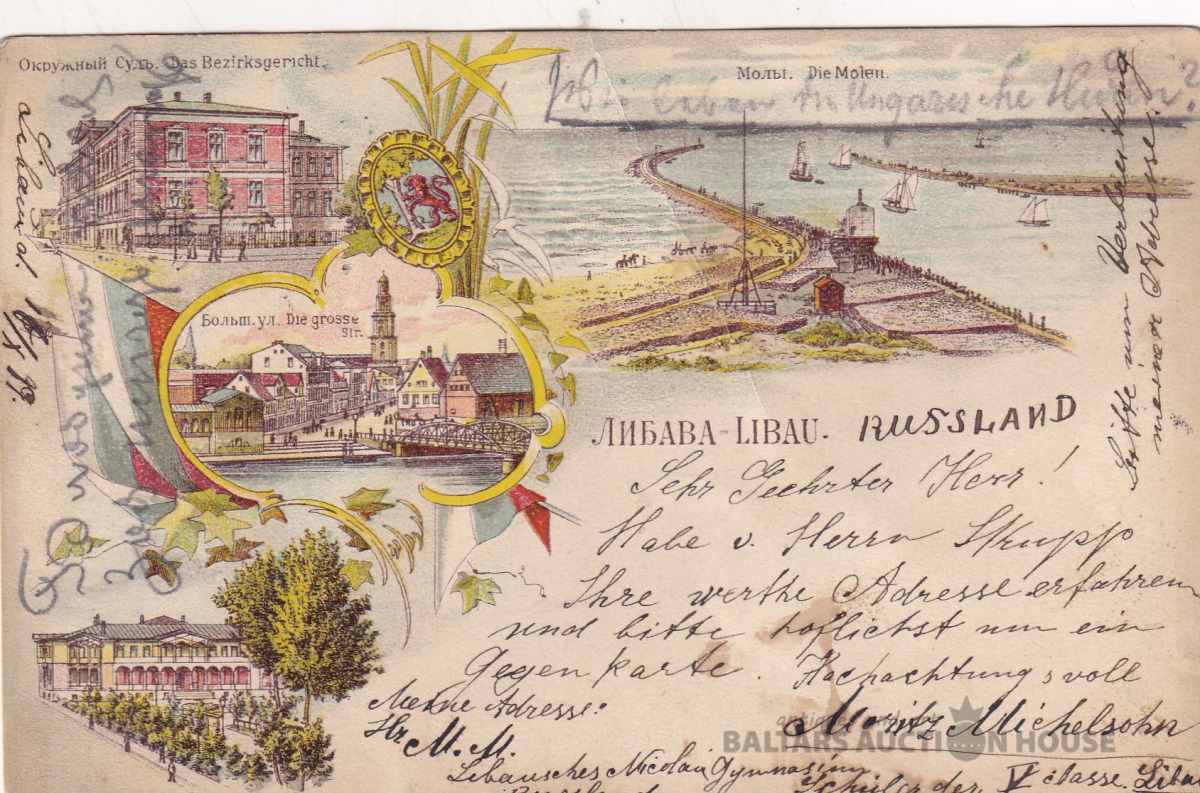 Окружный Судъ. Das Bezirksgericht.
Молы. Die Molen.
Больш. ул. Die grosse
Str.
Либава-Libau. RUSSLAND
Sehr Geehrter Herr!
Habe v. Herrn Skupp
Ihre werthe Adresse erfahren
und bitte höflichst um ein
Gegenkarte. Hochachtungsvoll
Moritz Michelsohn
Meine Adresse:
Hr. M. M.
Libausches Nicolai Gymnasium
Schüler der V classe. Libau
Russland
Bitte um Verbreitung
meiner Adresse.
Libau d.
in Ungarische
antique
BALTARS AUCTION HOUSE